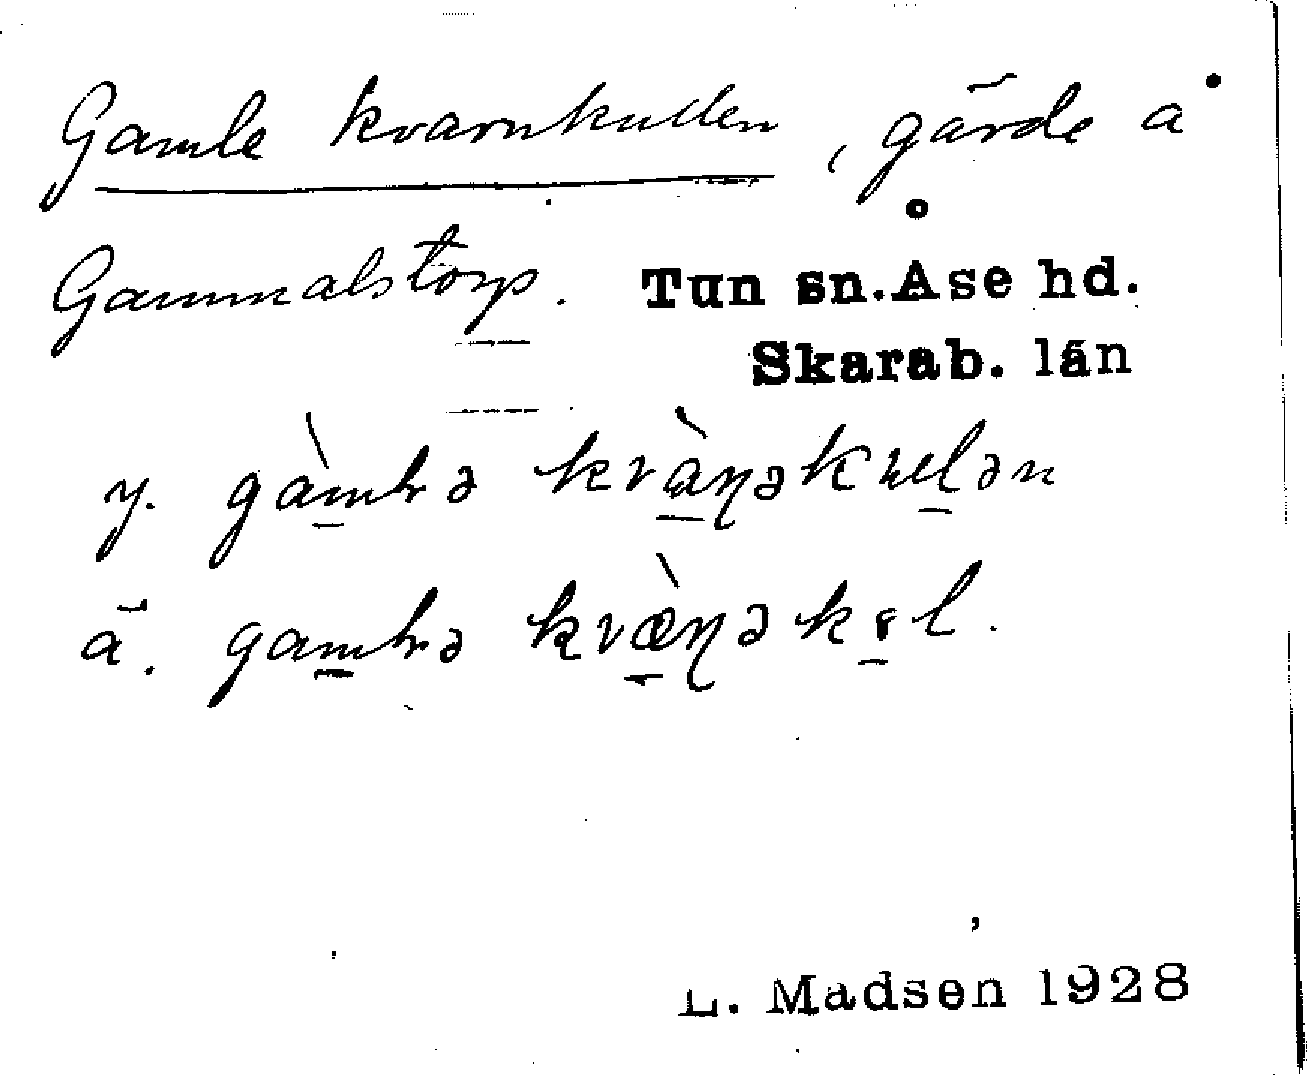 Gamle kvarnkullen, gärde å
Gammalstorp. Tun sn. Åse hd.
Skarab. län
y. gàmbɾə kvàɳəkuelən
ä. gambɾə kvæ̀ɳəkɵl.
L. Madsen 1928